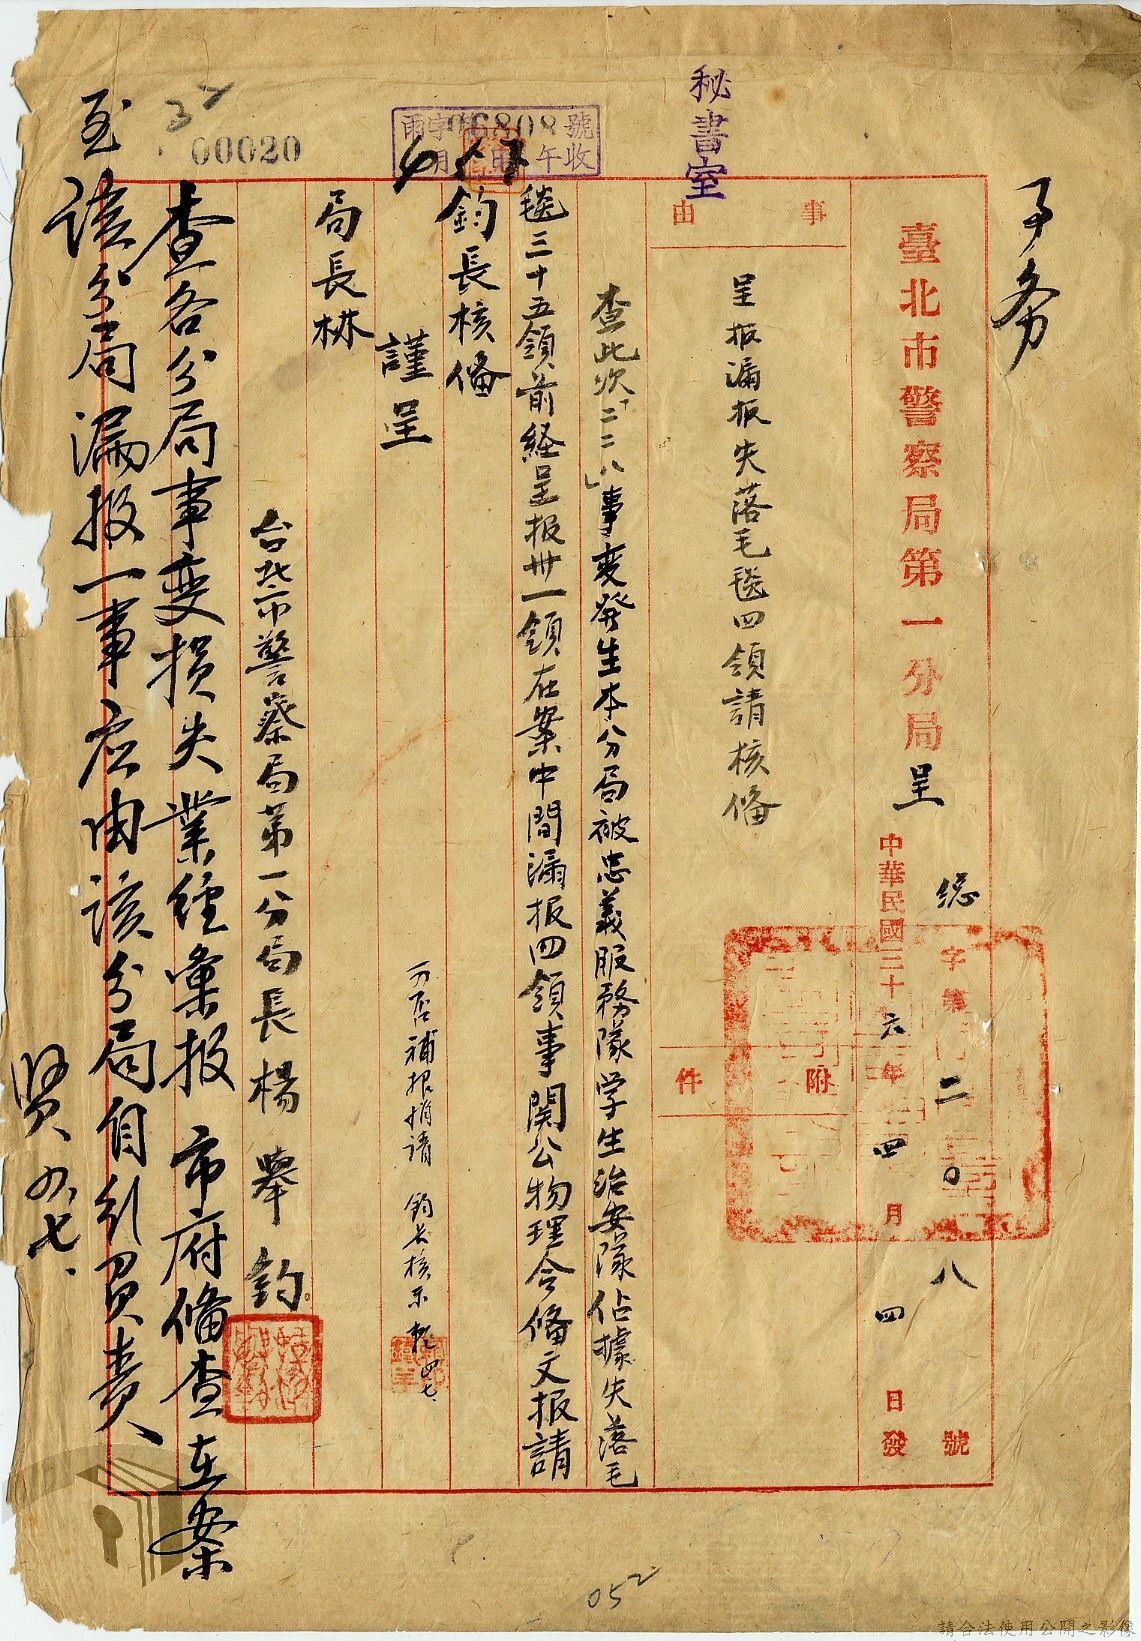 秘書室
臺北市警察局第一分局呈
總字第二〇八號
中華民國三十六年四月四日發
事由
呈報漏報失落毛毯四領請核備
附件
查此次「二二八」事變發生本分局被忠義服務隊学生治安隊佔據失落毛
毯三十五領前経呈报卅一領在案中間漏报四領事関公物理合备文报請
鈞長核備
謹呈
局長林
台北市警察局第一分局長楊舉鈞
可否補報悄請 鈞长核示
四七
查各分局事变损失業経彙报 市府備查在案
至该分局漏报一事应由该分局自引負責
賢 四、七、
雨字06808號
月 日 午收
00020
052
請合法使用公開之影像